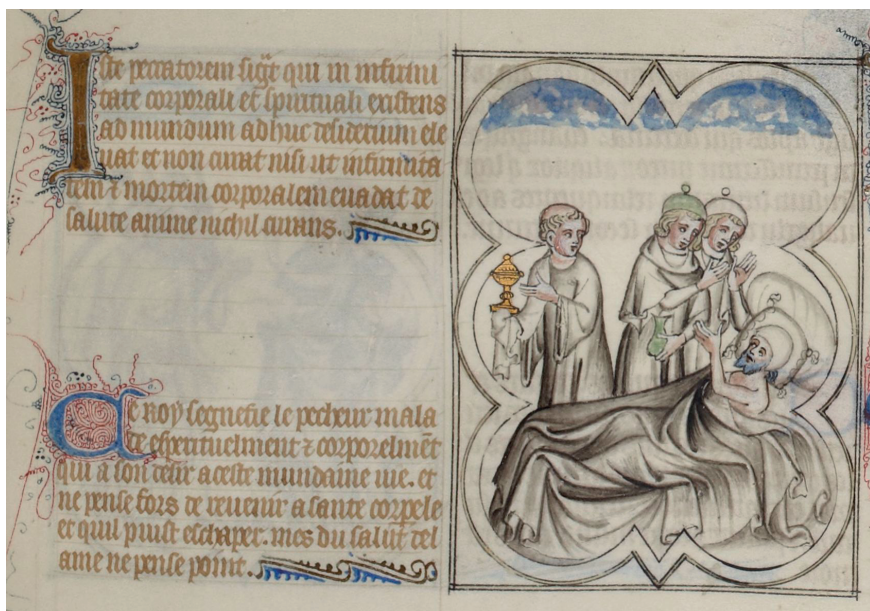 Iste peccatorem sigt qui in infirmi
tate corporali et spirituali existens
ad mundum adhuc desiderium ele
uat et non curat nisi ut infirmita
tem ⁊ mortem corporalem euadat de
salute anime nichil curans.
Ce roy segnefie le pecheur mala
de esperituelment ⁊ corporelmẽt
qui a son desir a ceste mundaine uie. et
ne pense fors de reuenir a sante corpele
et quil puist eschaper. mes du salut del
ame ne pense point.